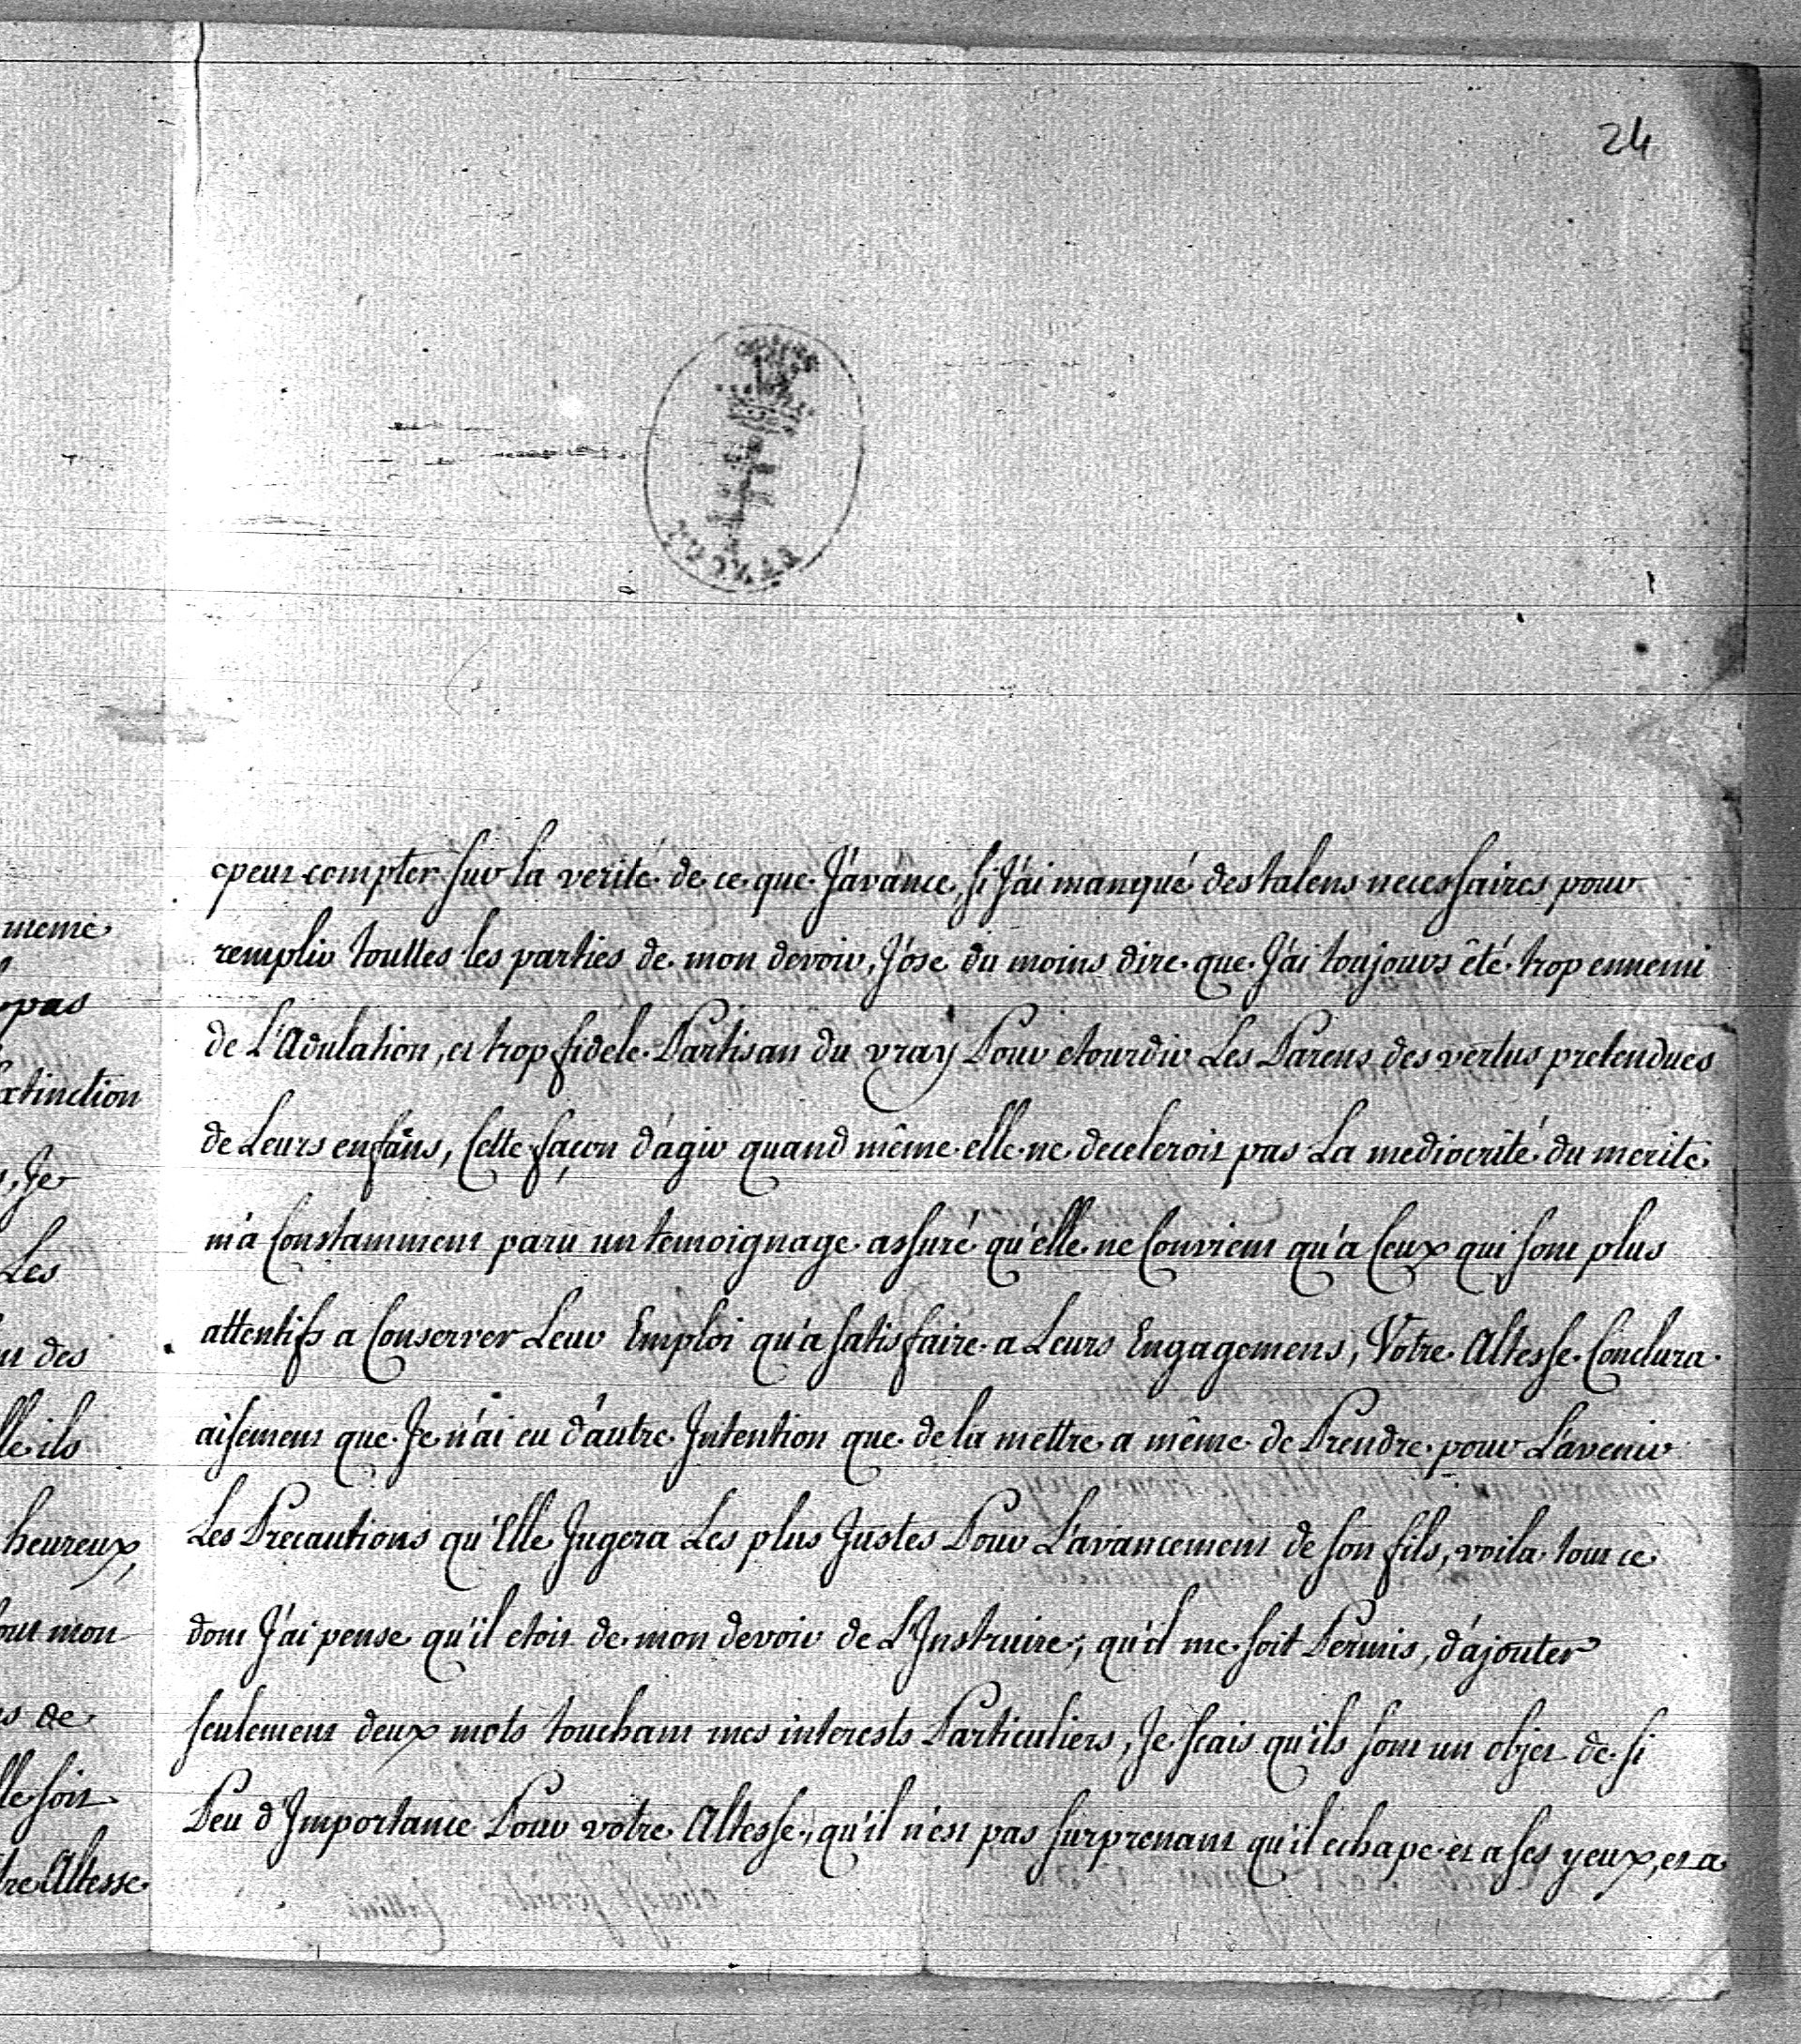 24
même
pas
extinction
, Je
Les
des
ils
heureux,
mon
de
soit
Altesse
peut compter sur la verité de ce que J'avance, si J'ai manqué des talens necessaires pour
remplir touttes les parties de mon devoir, J'ose du moins dire que J'ai toujours êté trop ennemi
de L'Adulation, et trop fidele Partisan du vray Pour etourdir Les Parens des vertus pretendues
de Leurs enfans, Cette façon d'agir quand même elle ne deceleroit pas La mediocrité du merite
m'a Constamment paru un temoignage assuré qu'elle ne Convient qu'a Ceux qui sont plus
attentifs a Conserver Leur Emploi qu'a satisfaire a Leurs Engagemens, Votre Altesse Conclura
aisement que Je n'ai eu d'autre Intention que de la mettre a même de Prendre pour L'avenir
Les Precautions qu'Elle Jugera Les plus Justes Pour L'avancement de son fils, voila tout ce
dont J'ai pense qu'il etoit de mon devoir de L'Instruire, qu'il me soit Permis, d'ajouter
seulement deux mots touchant mes interests Particuliers, Je sçais qu'ils sont un objet de si
Peu d'Importance Pour votre Altesse, qu'il n'est pas surprenant qu'il echape et a ses yeux, et a